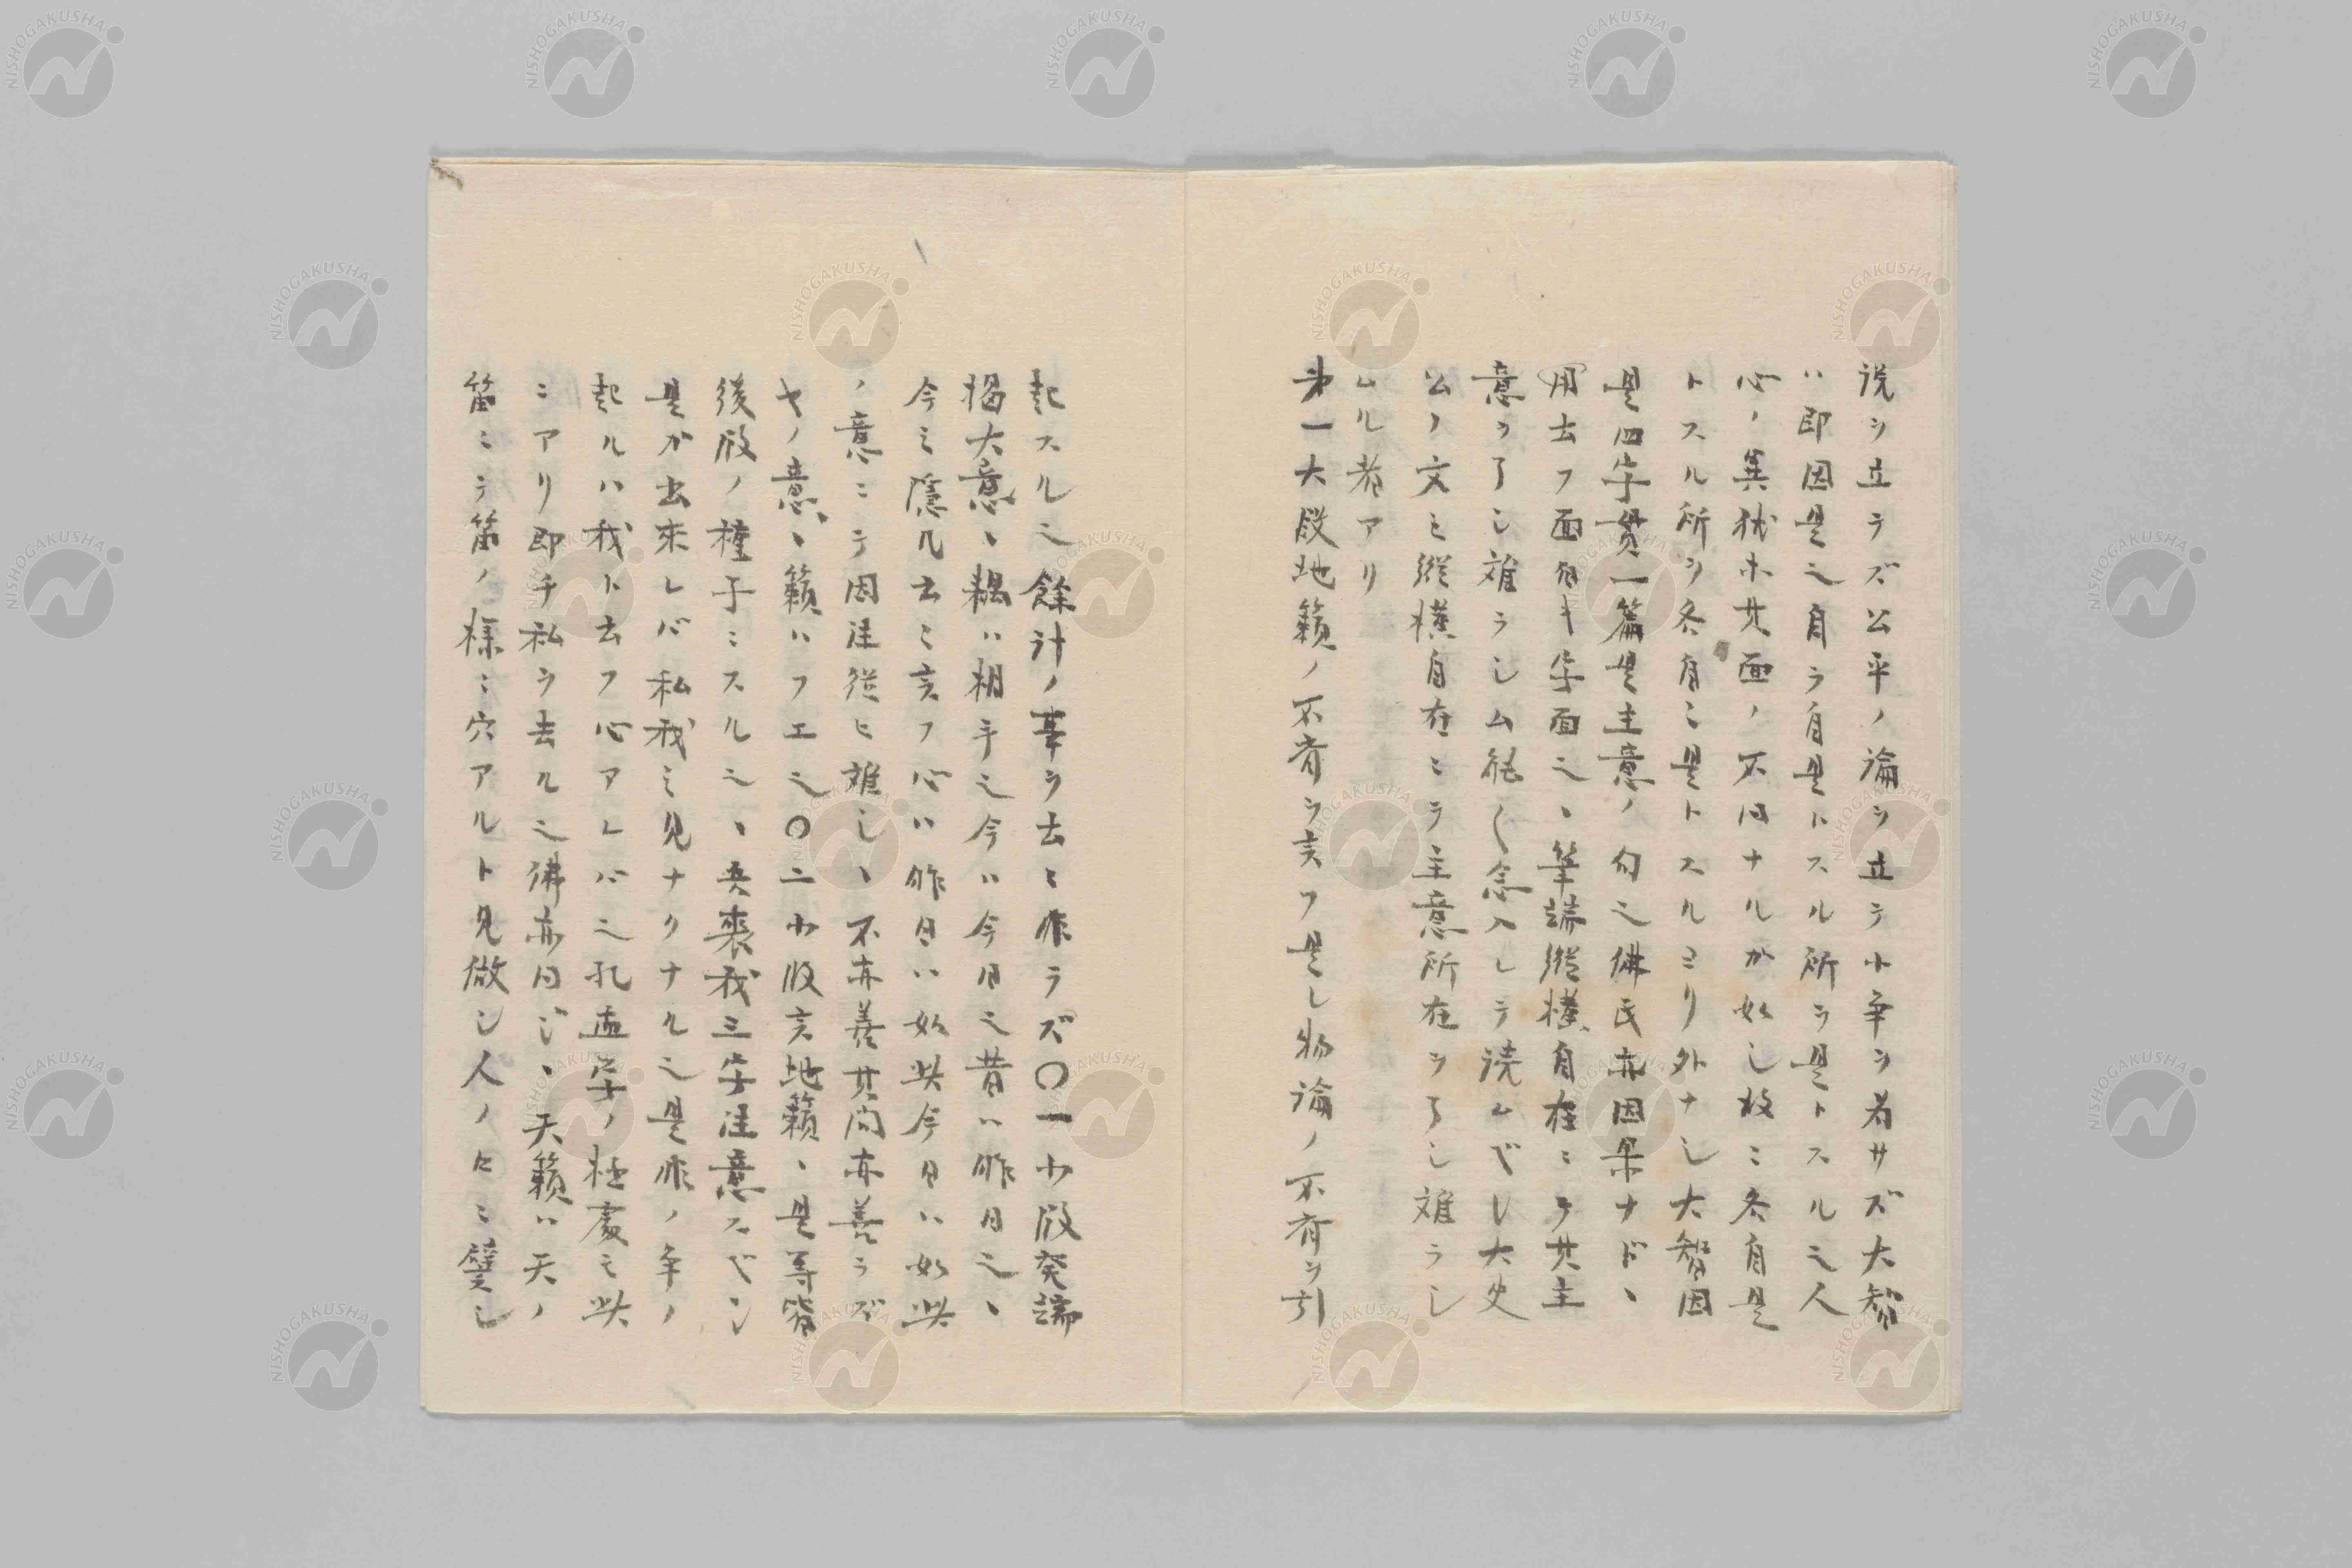 説ヲ立ラズ公平ノ論ヲ立テ小争ヲ為サズ大智
ハ即因是也自ラ自是トスル所ヲ是トスル也人
心ノ異猶ホ其面ノ不同ナルガ如し故ニ各自是
トスル所ヲ各自ニ是トスルヨリ外ナし大智因
是四字貫一篇是主意ノ句也佛氏亦因果ナド丶
用云フ面白キ字面也丶筆端縦横自在ニテ其主
意ヲ了し難ラしム能〱念入レテ読ムべし大史
公ノ文モ縦横自在ニテ主意所在ヲ了し難ラし
ムル者アリ
第一大段地籟ノ不斉ヲ言フ是し物論ノ不斉ヲ引
起スル也餘計ノ筆ヲ去ヒ作ラズ〇一小段発端
掲大意丶耦ハ相手也今ハ今日也昔ハ昨日也丶
今ミ隠几云ミ言フ心ハ昨日ハ如此今日ハ如此
ノ意ニテ因注従ヒ難し丶不亦善其問亦善ラズ
ヤノ意丶籟ハフエ也〇二小段言地籟丶是等皆
後段ノ種子ニスル也丶吾喪我三字注意スベシ
是ガ出来レバ私我ミ見ナクナル也是非ノ争ノ
起ルハ我ト云フ心アレバ也孔孟学ノ極處モ此
ニアリ即チ私ヲ去ル也佛亦同ジ丶天籟ハ天ノ
笛ニテ笛ノ様ニ穴アルト見做シ人ノ口ニ譬し